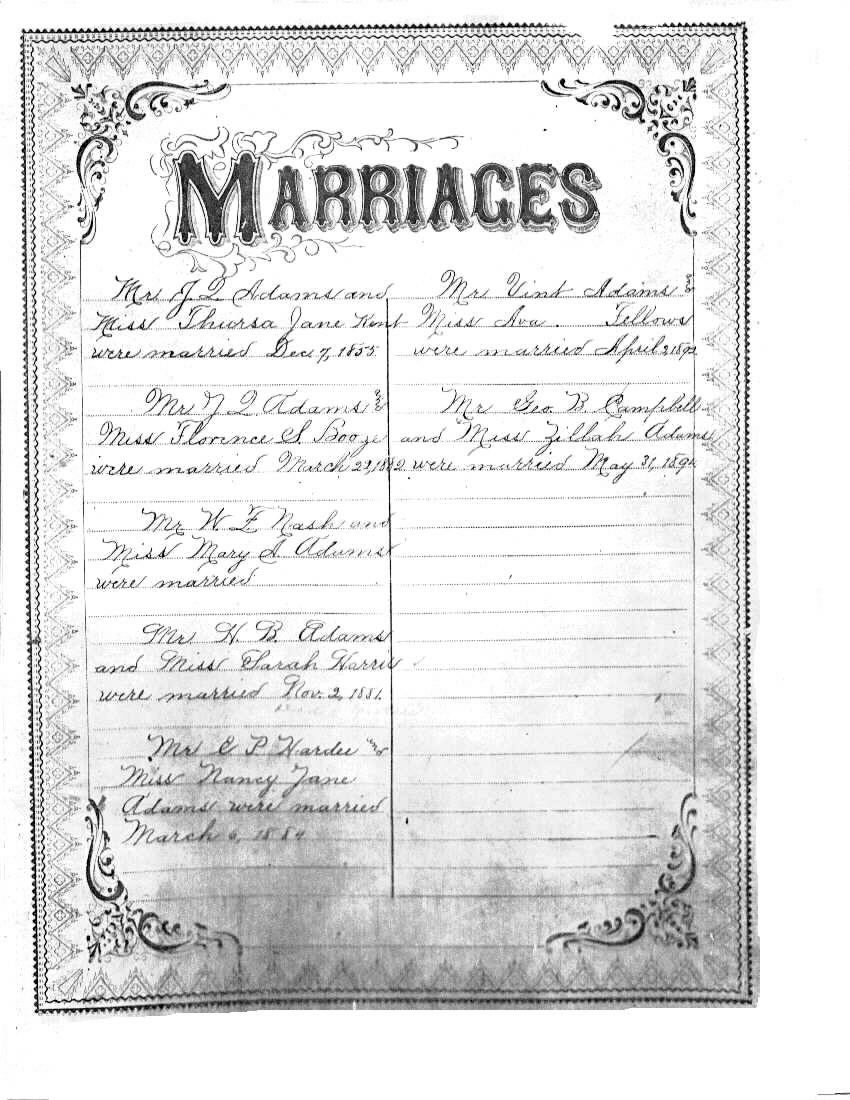 MARRIAGES
Mr J Q Adams and
Miss Thursa Jane Kent
were married Dec 7, 1855
Mr J Q Adams &
Miss Florence S. Booze
were married March 22, 1882
Mr W. F. Nash and
Miss Mary A Adams
were married
Mr H. B. Adams
and Miss Sarah Harris
were married Nov. 2, 1881.
Mr E P Hardee and
Miss Nancy Jane
Adams were married
March 6, 1884
Mr Vint Adams &
Miss Ava. Fellows
were married April 2, 189
Mr Geo. B. Campbell
and Miss Zillah Adams
were married May 31, 189